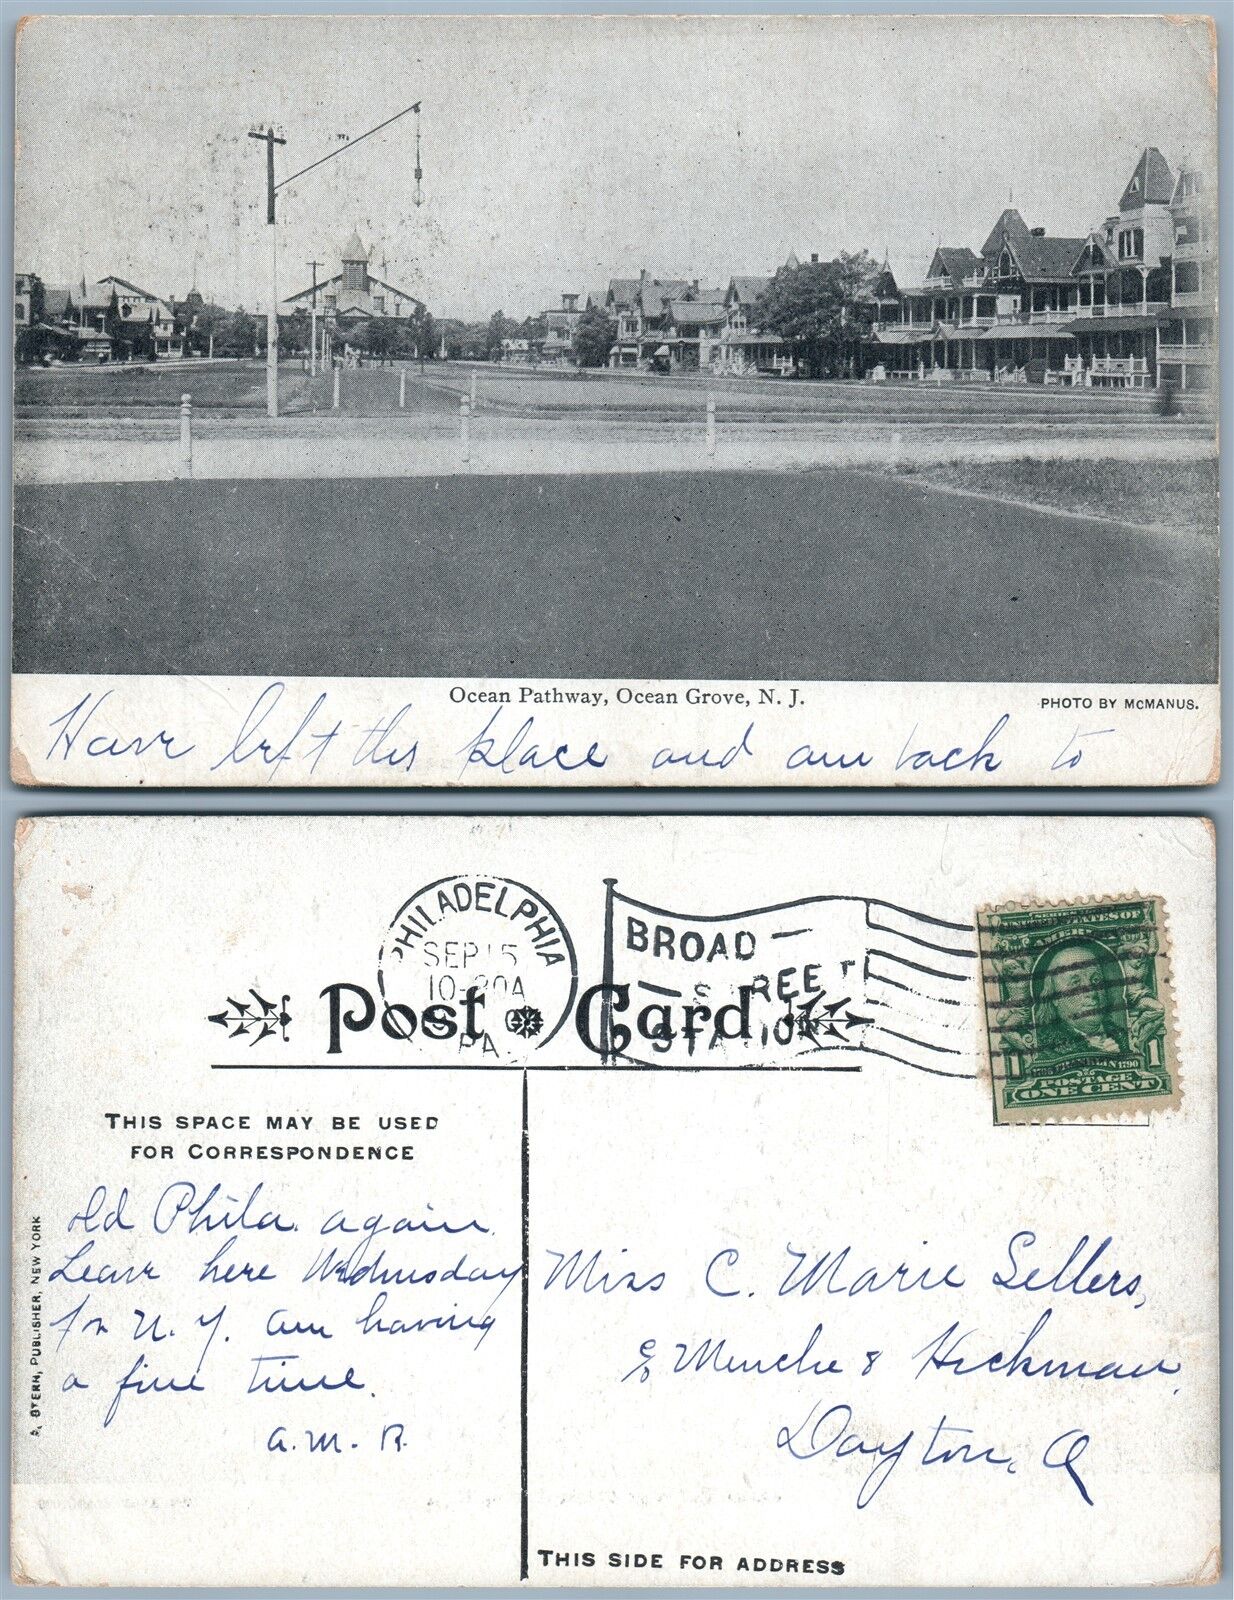 Ocean Pathway, Ocean Grove, N. J.
PHOTO BY McMANUS.
Have left this place and am back to
PHILADELPHIA
SEP 15
10-30A
PA.
BROAD
STREET
STATION
Post Card
SERIES 1902
UNITED STATES OF
AMERICA
1706 FRANKLIN 1790
1 1
POSTAGE
ONE CENT
THIS SPACE MAY BE USED
FOR CORRESPONDENCE
old Phila. again.
Leave here Wednesday
for N. Y. am having
a fine time.
a. m. R.
STERN, PUBLISHER, NEW YORK
Miss C. Marie Sellers,
c/o & Hickman,
Dayton, O
THIS SIDE FOR ADDRESS